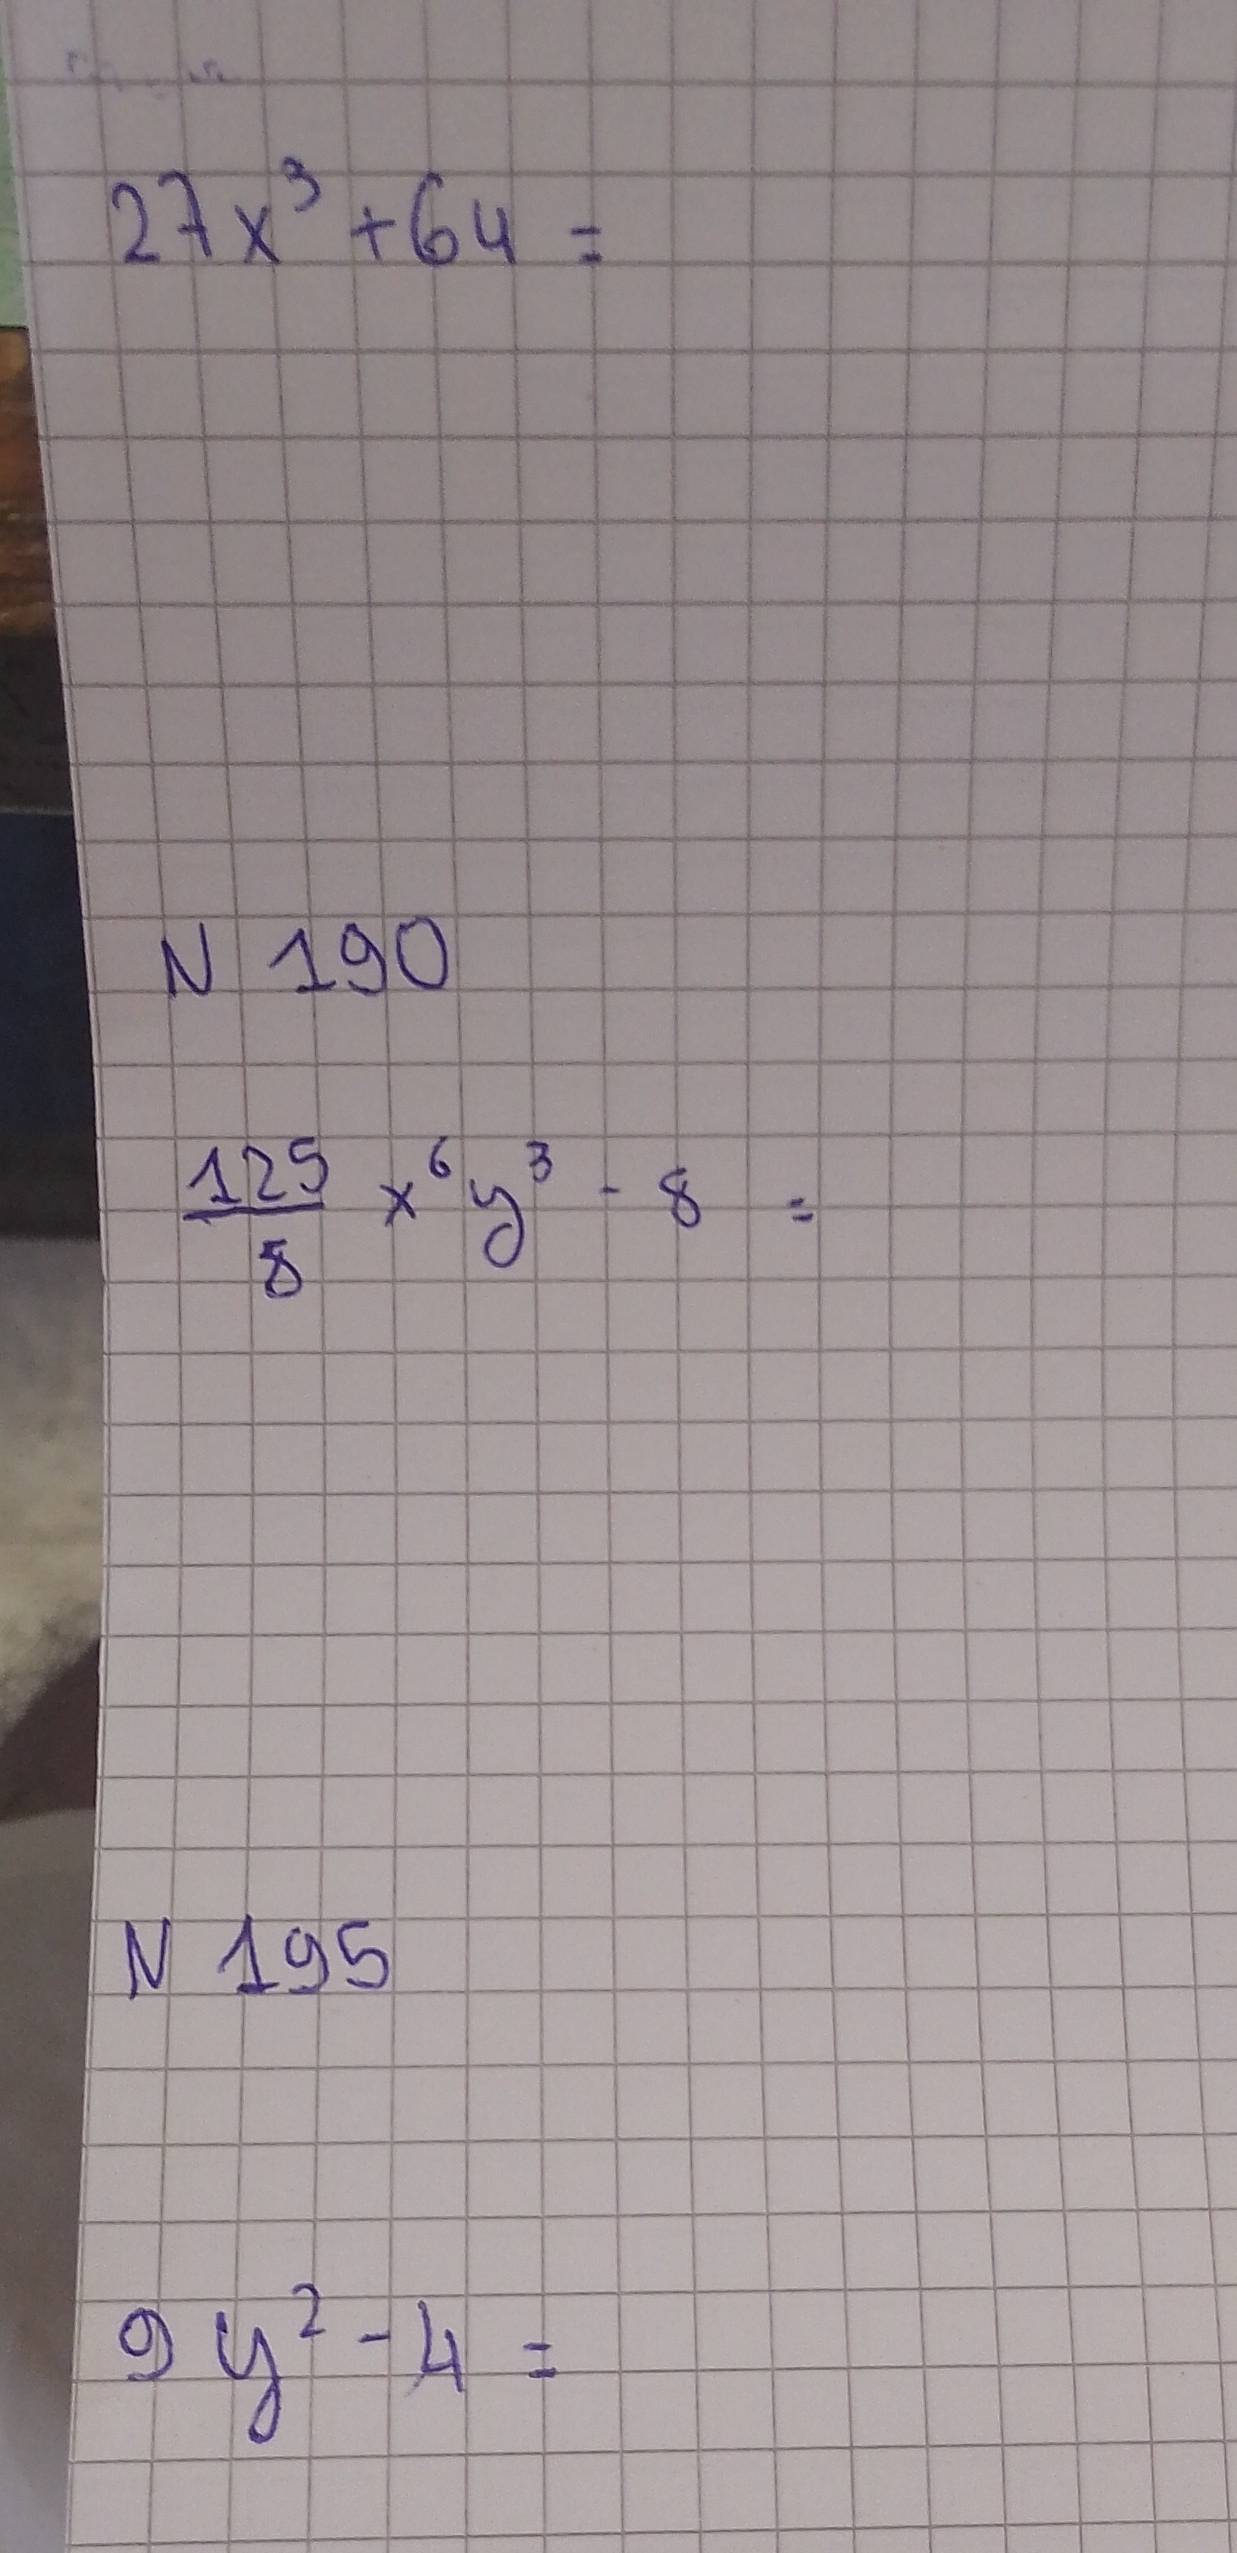 27x³ + 64 =
N 190
125/8 x⁶y³ - 8 =
N 195
9y² - 4 =